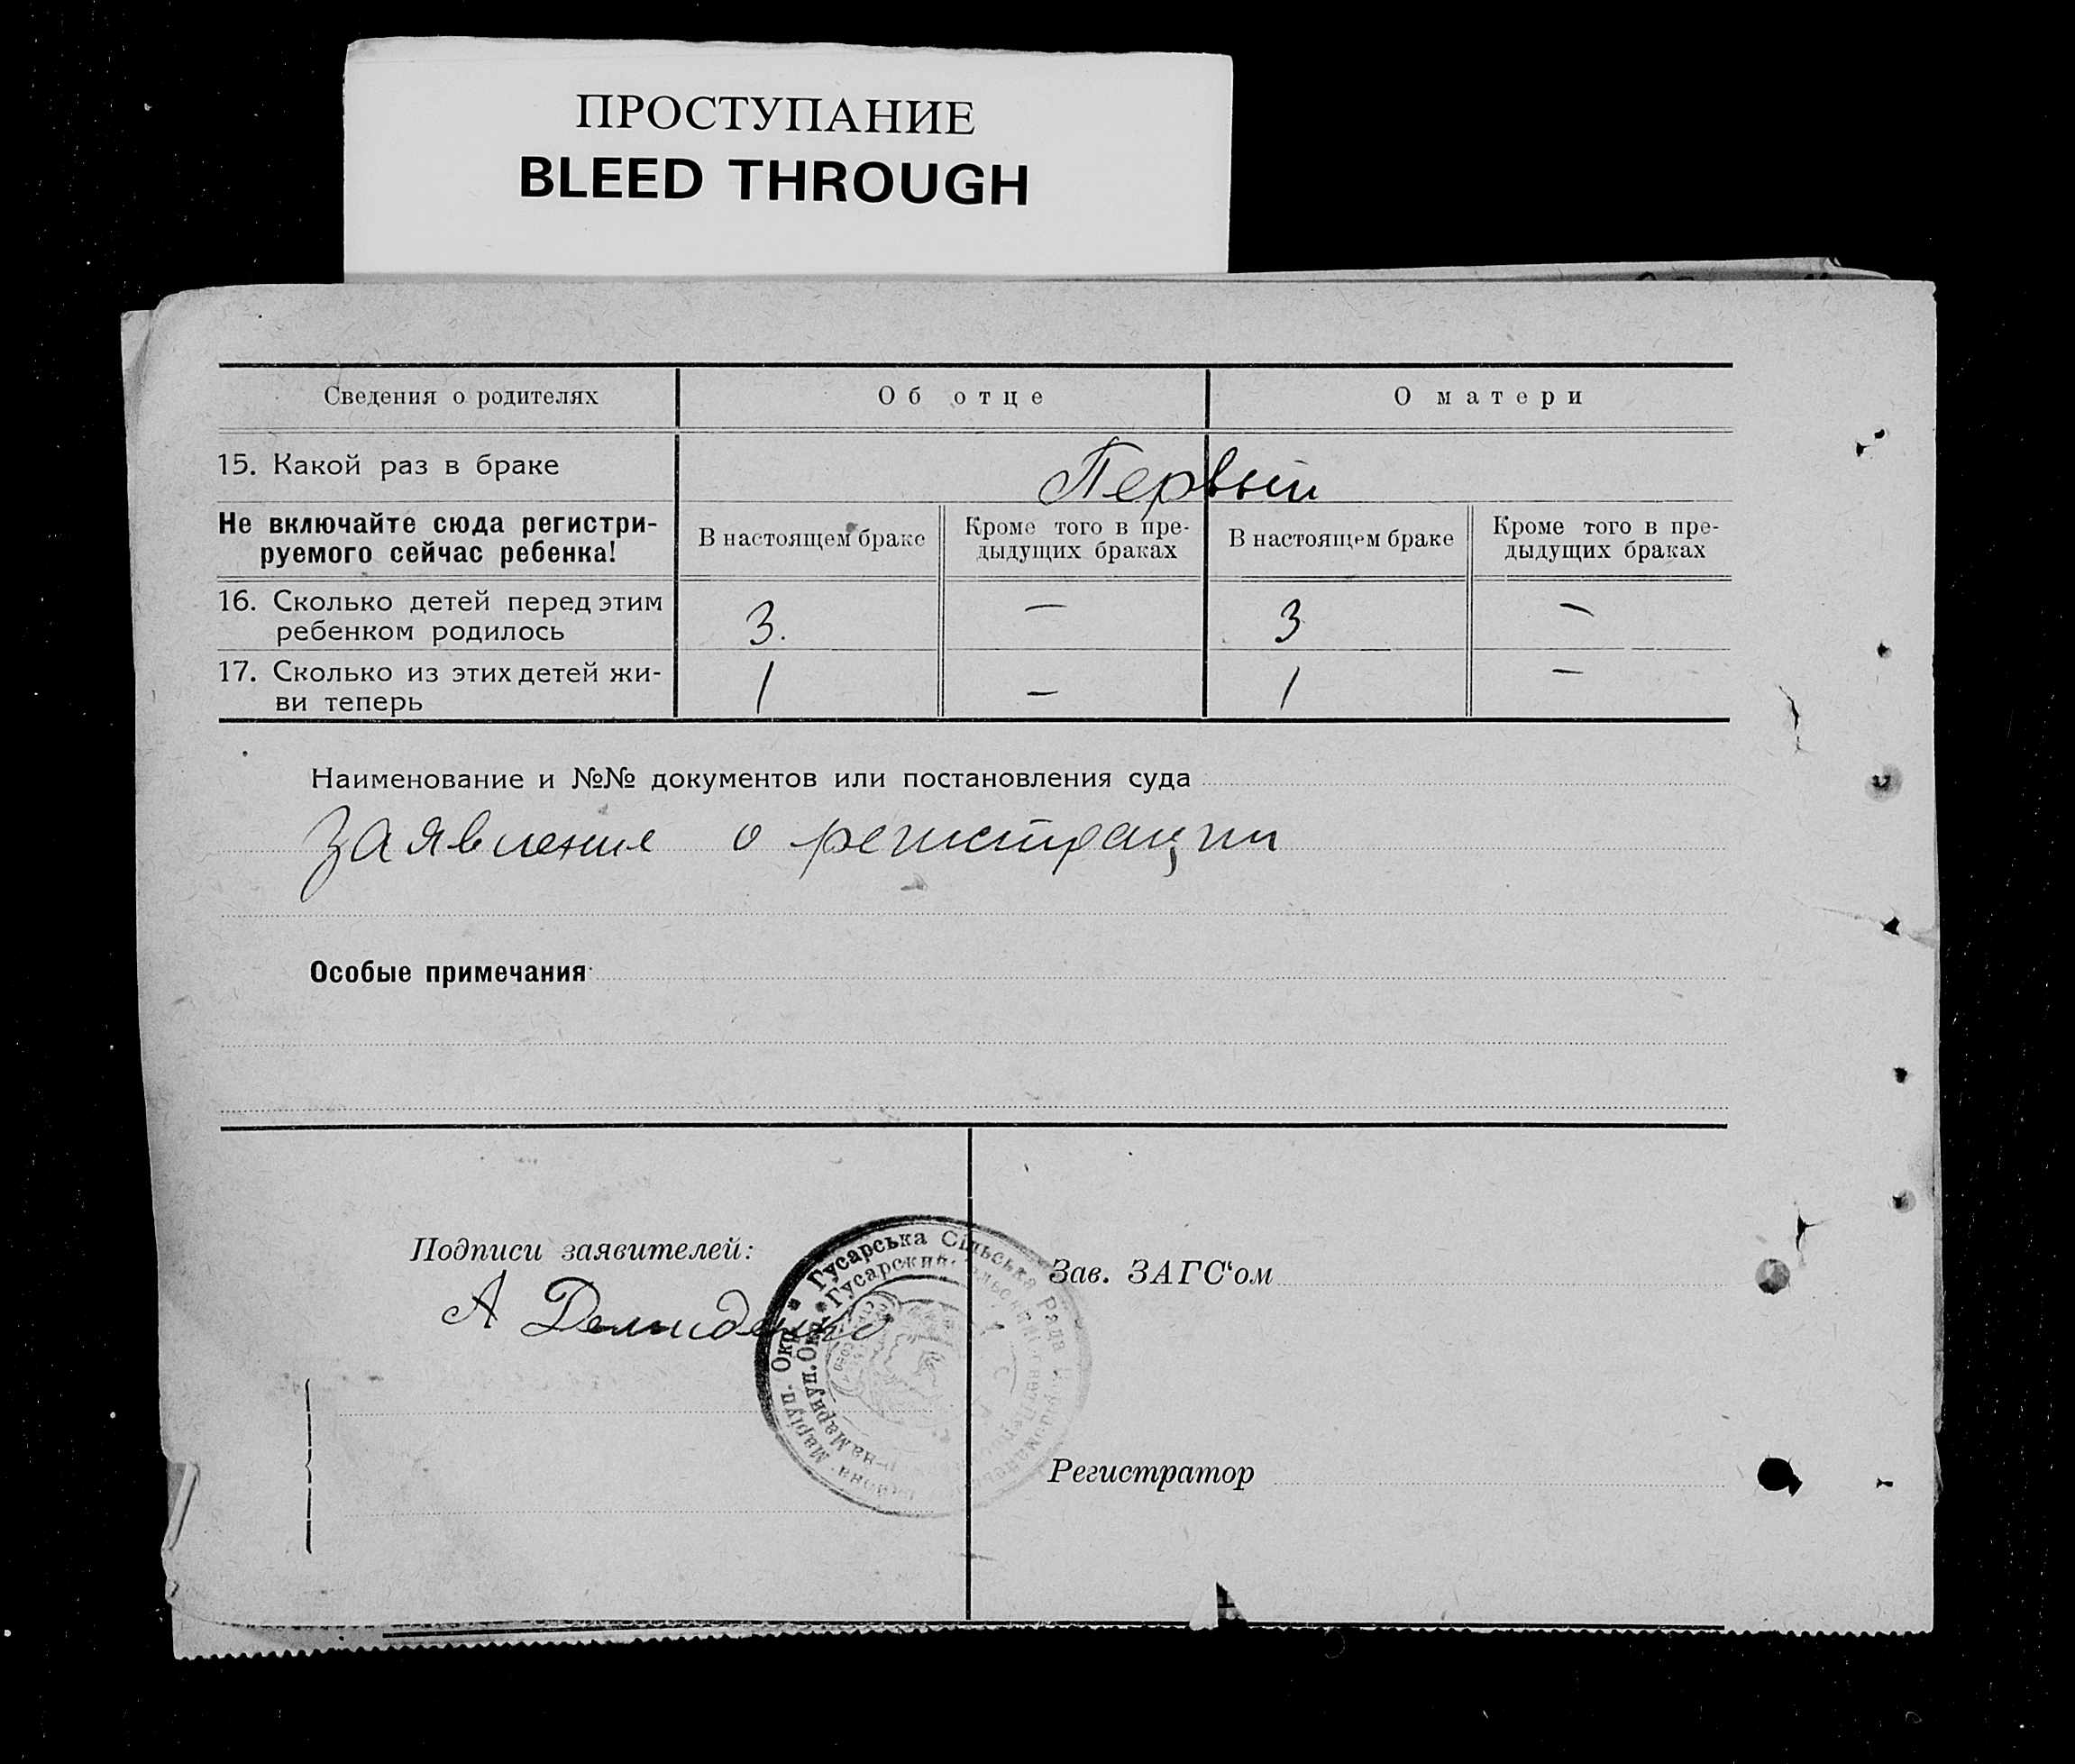 ПРОСТУПАНИЕ
BLEED THROUGH
Сведения о родителях Об отце О матери
15. Какой раз в браке Первый
Не включайте сюда регистри-
руемого сейчас ребенка!
В настоящем браке
Кроме того в пре-
дыдущих браках
В настоящем браке
Кроме того в пре-
дыдущих браках
16. Сколько детей перед этим
ребенком родилось 3. — 3 —
17. Сколько из этих детей жи-
ви теперь 1 — 1 —
Наименование и №№ документов или постановления суда
заявление о регистрации
Особые примечания
Подписи заявителей:
А Демиденко
Гусарська Сільська Рада
Маріуп. Окр.
Гусарский
на Мариуп. Окр.
Зав. ЗАГС‘ом
Регистратор